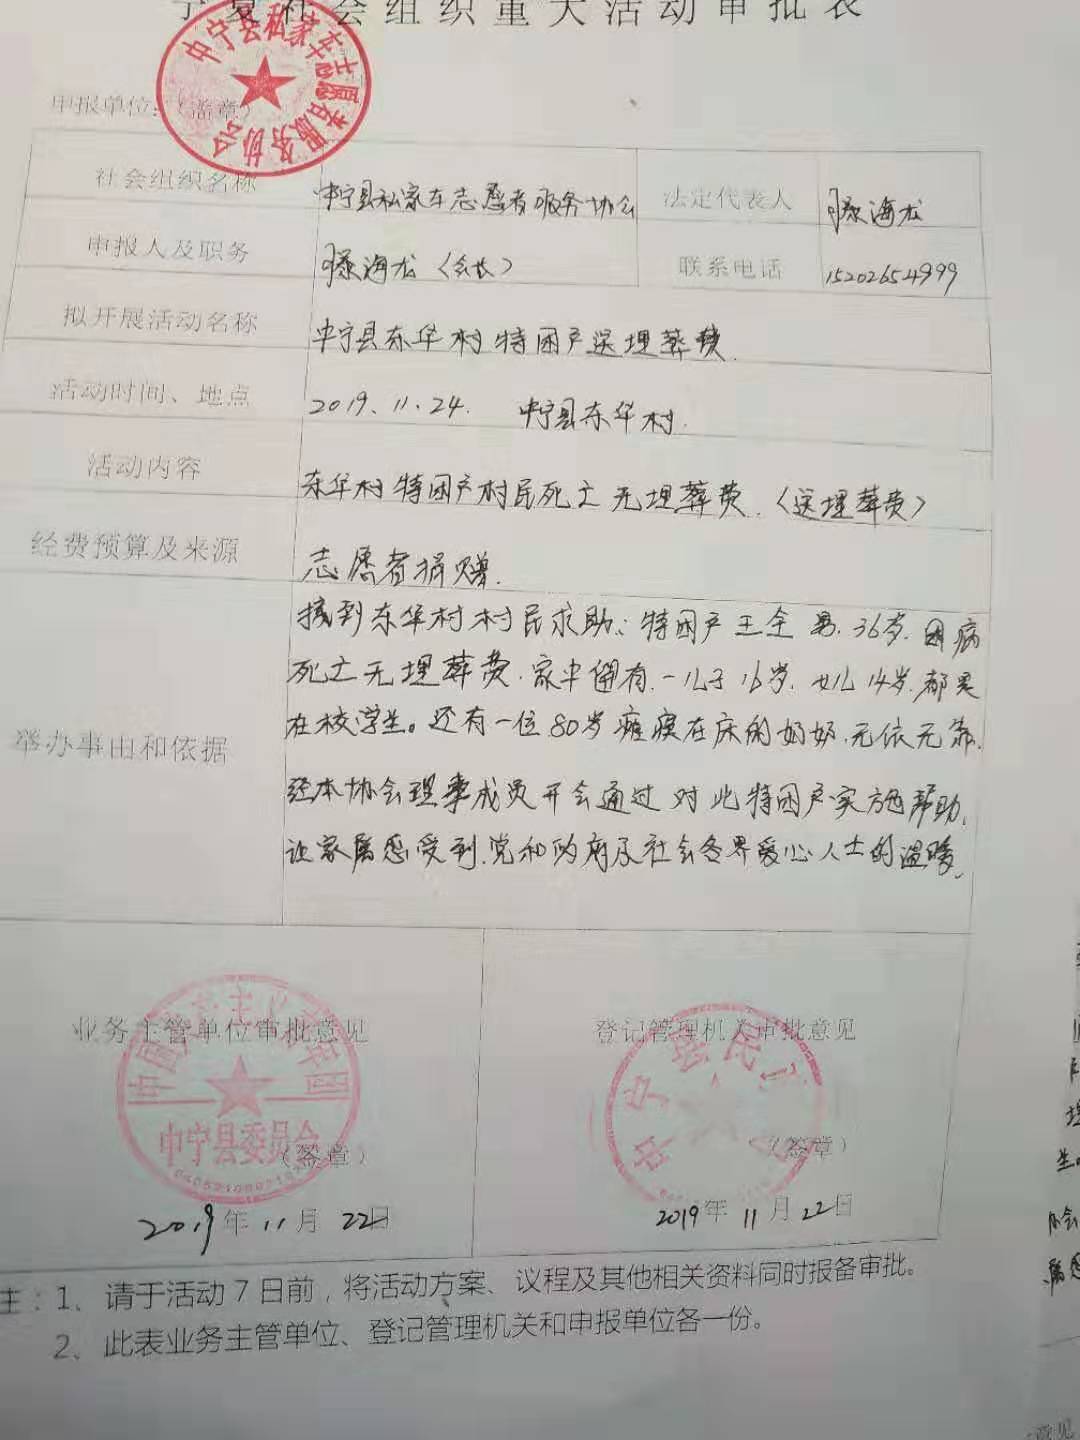 宁夏社会组织重大活动审批表
中宁县私家车志愿者服务协会
申报单位：（盖章）
社会组织名称 中宁县私家车志愿者服务协会 法定代表人 滕海龙
申报人及职务 滕海龙（会长） 联系电话 15202654999
拟开展活动名称 中宁县东华村特困户送埋葬费.
活动时间、地点 2019.11.24. 中宁县东华村.
活动内容 东华村特困户村民死亡无埋葬费.（送埋葬费）
经费预算及来源 志愿者捐赠.
举办事由和依据
接到东华村村民求助：特困户王全 男.36岁.因病
死亡无埋葬费.家中留有.一儿子16岁.女儿14岁.都是
在校学生。还有一位80岁瘫痪在床的奶奶.无依无靠.
经本协会理事成员开会通过对此特困户实施帮助.
让家属感受到.党和政府及社会各界爱心人士的温暖.
业务主管单位审批意见 登记管理机关审批意见
中国共产主义青年团
中宁县委员会
中宁县民政
（签章） （签章）
2019年11月22日 2019年11月22日
注：1、请于活动7日前，将活动方案、议程及其他相关资料同时报备审批。
2、此表业务主管单位、登记管理机关和申报单位各一份。
意见